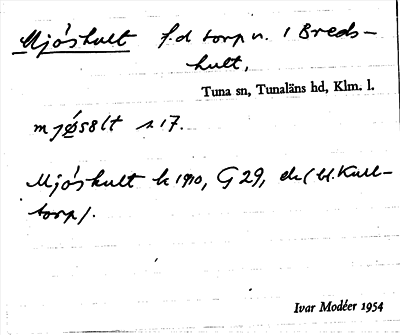 Mjóshult f.d torp n. i Breds-
hult,
Tuna sn, Tunaläns hd, Klm. l.
mjø̀s8lt s. 17.
Mjóshult k 1910, G 29, ek (bl. Kull-
torp).
Ivar Modéer 1954